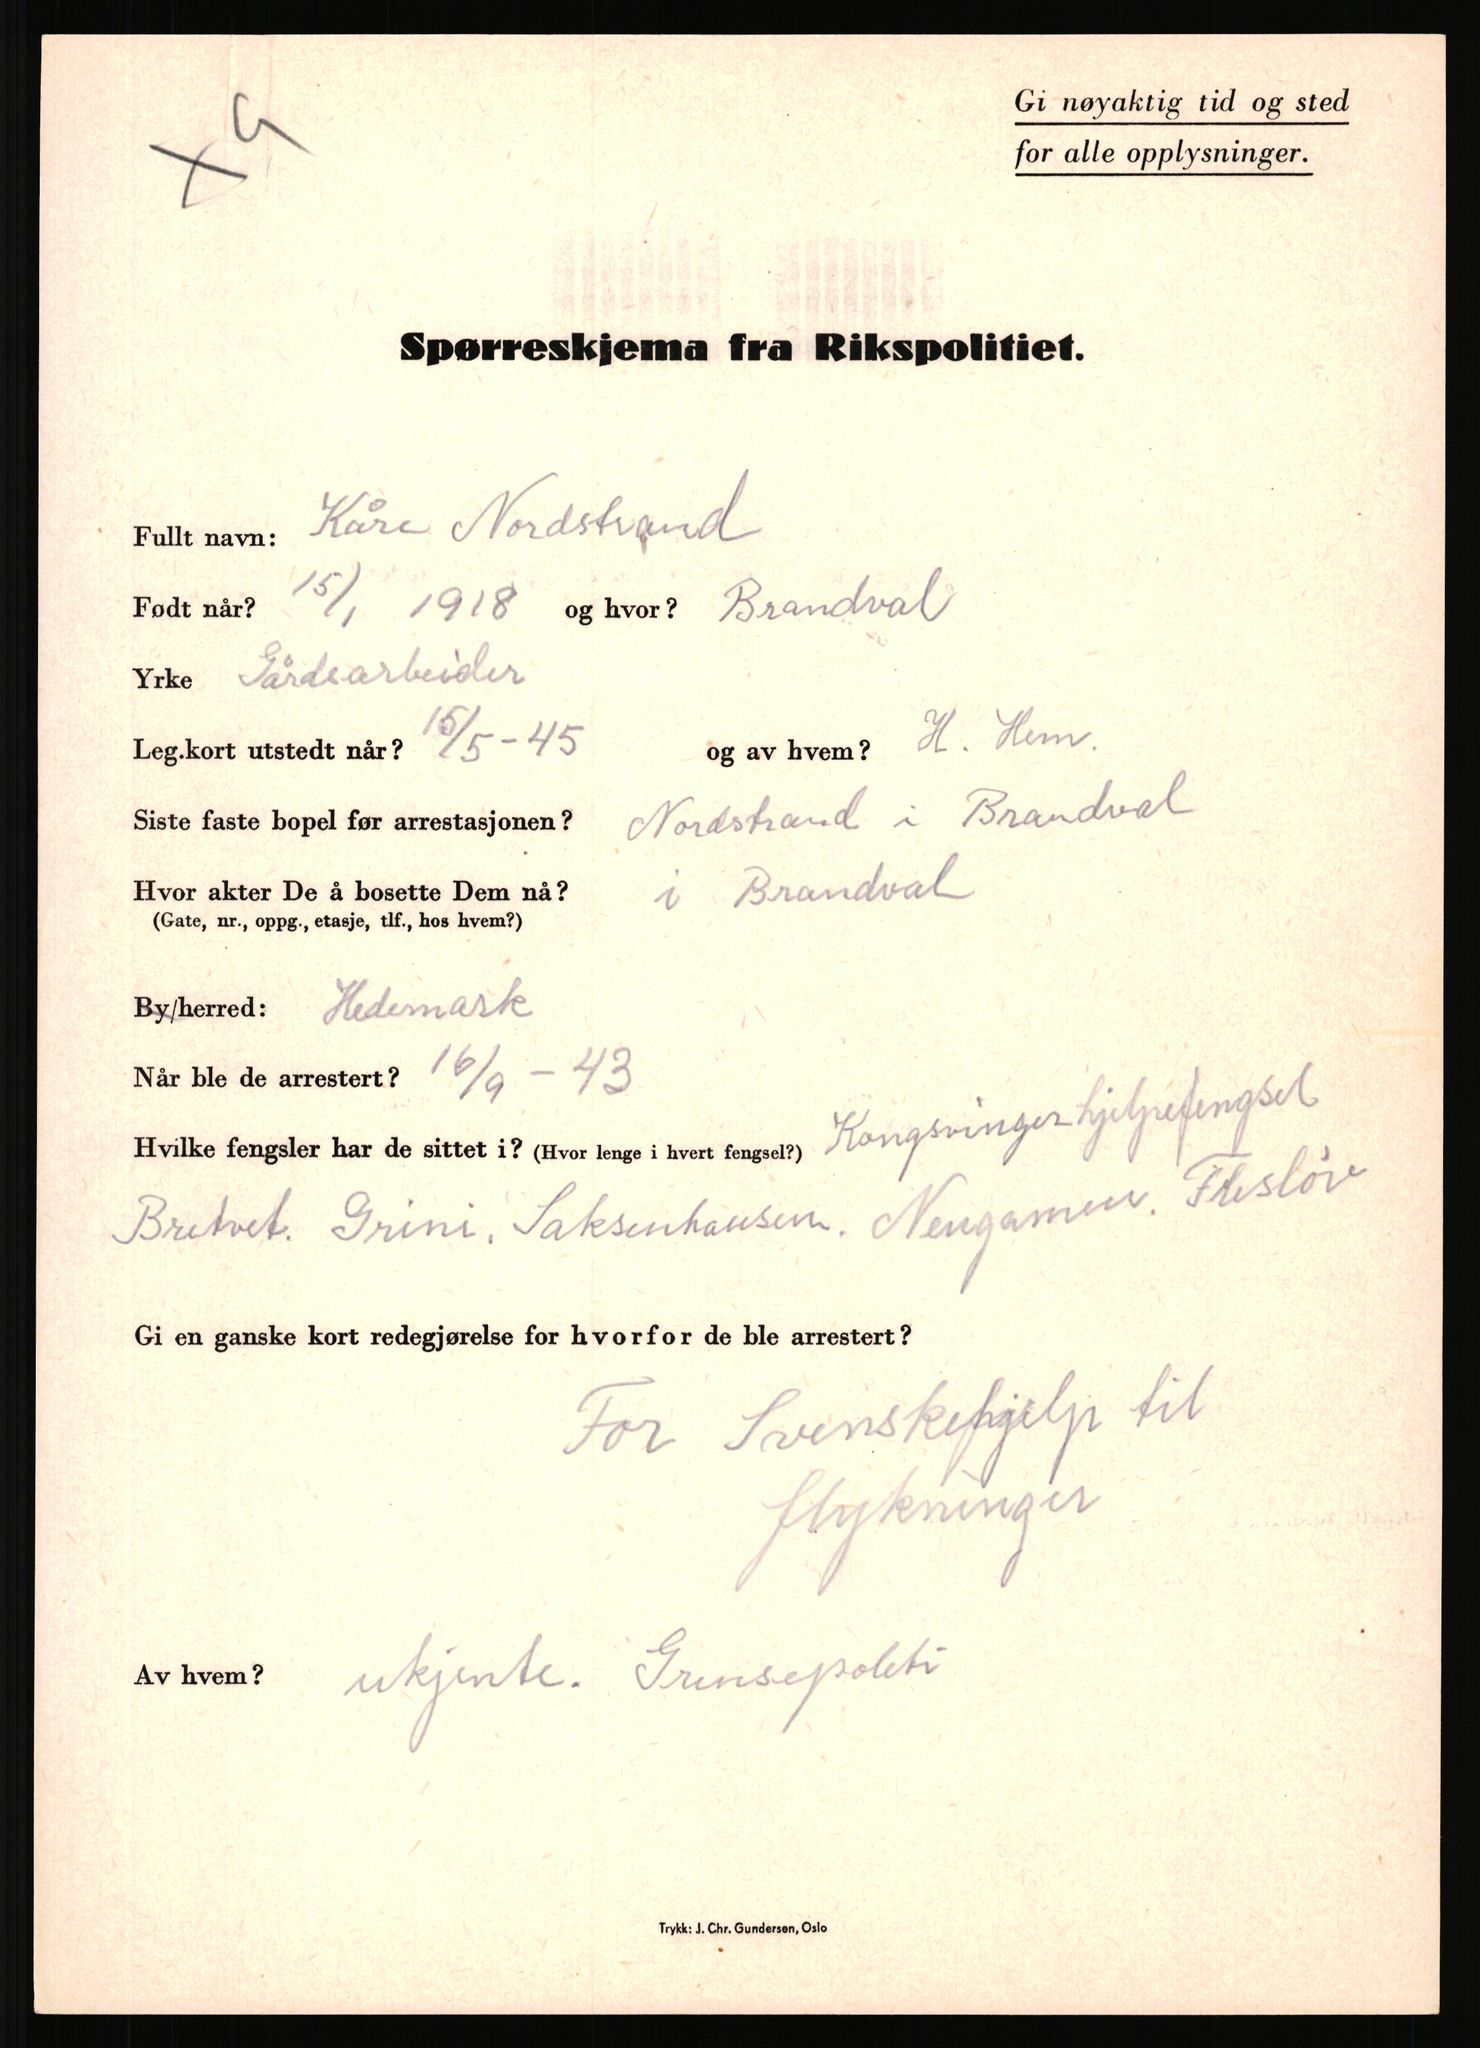 xG
Gi nøyaktig tid og sted
for alle opplysninger.
Spørreskjema fra Rikspolitiet.
Fullt navn: Kåre Nordstrand
Født når? 15/1 1918 og hvor? Brandval
Yrke Gårdsarbeider
Leg.kort utstedt når? 15/5-45 og av hvem? H. Hem.
Siste faste bopel før arrestasjonen? Nordstrand i Brandval
Hvor akter De å bosette Dem nå? i Brandval
(Gate, nr., oppg., etasje, tlf., hos hvem?)
By/herred: Hedemark
Når ble de arrestert? 16/9 - 43
Hvilke fengsler har de sittet i? (Hvor lenge i hvert fengsel?) Kongsvinger hjelpefengsel
Bretvet. Grini. Saksenhausen. Nengamen.
Gi en ganske kort redegjørelse for hvorfor de ble arrestert?
For Svenskehjelp til
flykninger
Av hvem? ukjente. Grensepoleti
Trykk: J. Chr. Gundersen, Oslo